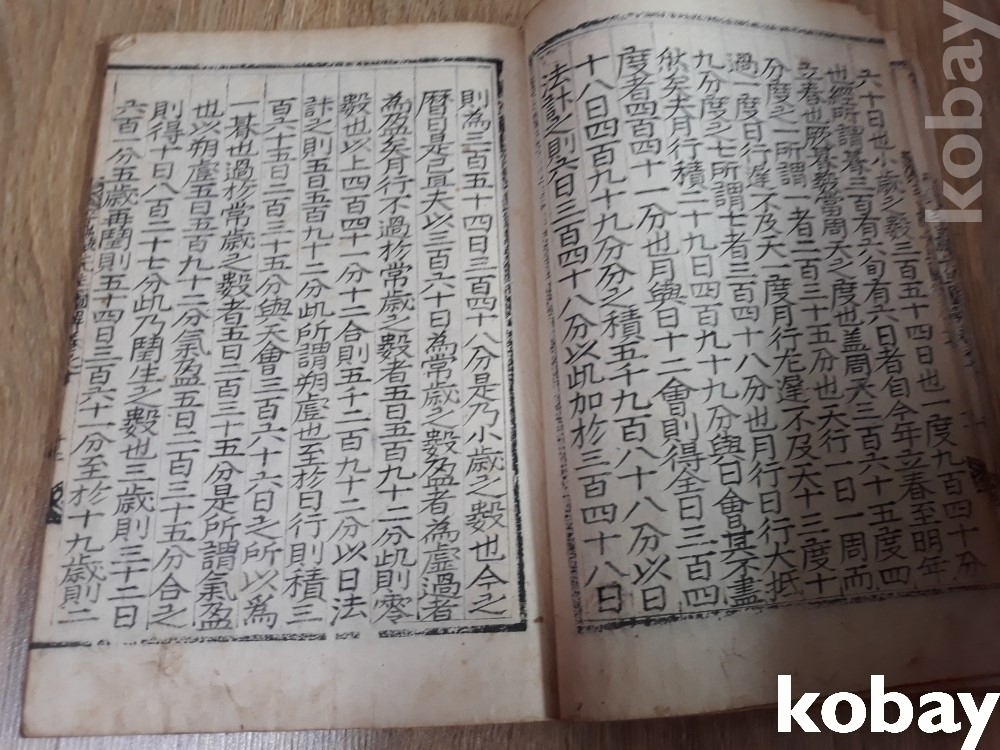 六十日也小歲之數三百五十四日也一度九百四十分
也經所謂朞三百有六旬有六日者自今年立春至明年
立春也厥朞數當周天之度也盖周天三百六十五度四
分度之一所謂一者二百三十五分也天行一日一周而
過一度日行遲不及天一度月行尤遲不及天十三度十
九分度之七所謂七者三百四十八分也月行日行大抵
然矣夫月行積二十九日四百九十九分與日會其不盡
度者四百四十一分也月與日十二會則得全日三百四
十八日四百九十九分分之積五千九百八十八分以日
法計之則六日三百四十八分以此加於三百四十八日
則為三百五十四日三百四十八分是乃小歲之數也今之
曆日是已且夫以三百六十日為常歲之數盈者為虛過者
為盈矣月行不過於常歲之數者五日五百九十二分此則零
數也以上四百四十一分十二合則五千二百九十二分以日法
計之則五日五百九十二分此所謂朔虛也至於日行則積三
百六十五日二百三十五分與天會三百六十六日之所以為
一朞也過於常歲之數者五日二百三十五分是所謂氣盈
也以朔虛五日五百九十二分氣盈五日二百三十五分合之
則得十日八百二十七分此乃閏生之數也三歲則三十二日
六百一分五歲再閏則五十四日三百六十一分至於十九歲則二
kobay
kobay